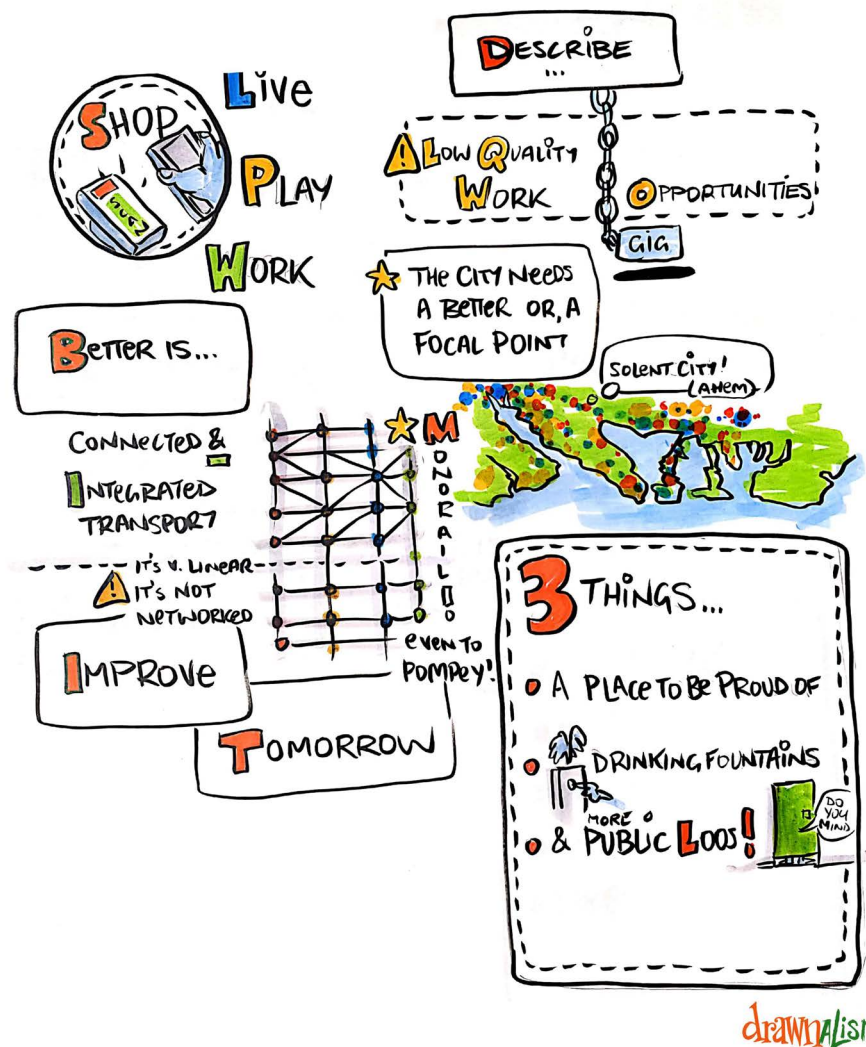 SHOP
Live
PLAY
WORK
DESCRIBE
...
LOW QUALITY
WORK
OPPORTUNITIES
GIG
THE CITY NEEDS
A BETTER OR, A
FOCAL POINT
SOLENT CITY!
(AHEM)
BETTER IS...
CONNECTED &
INTEGRATED
TRANSPORT
IT'S V. LINEAR
IT'S NOT
NETWORKED
MONORAIL
even to
POMPEY!
IMPROVE
TOMORROW
3 THINGS...
A PLACE TO BE PROUD OF
DRINKING FOUNTAINS
MORE
& PUBLIC LOOS!
DO
YOU
MIND